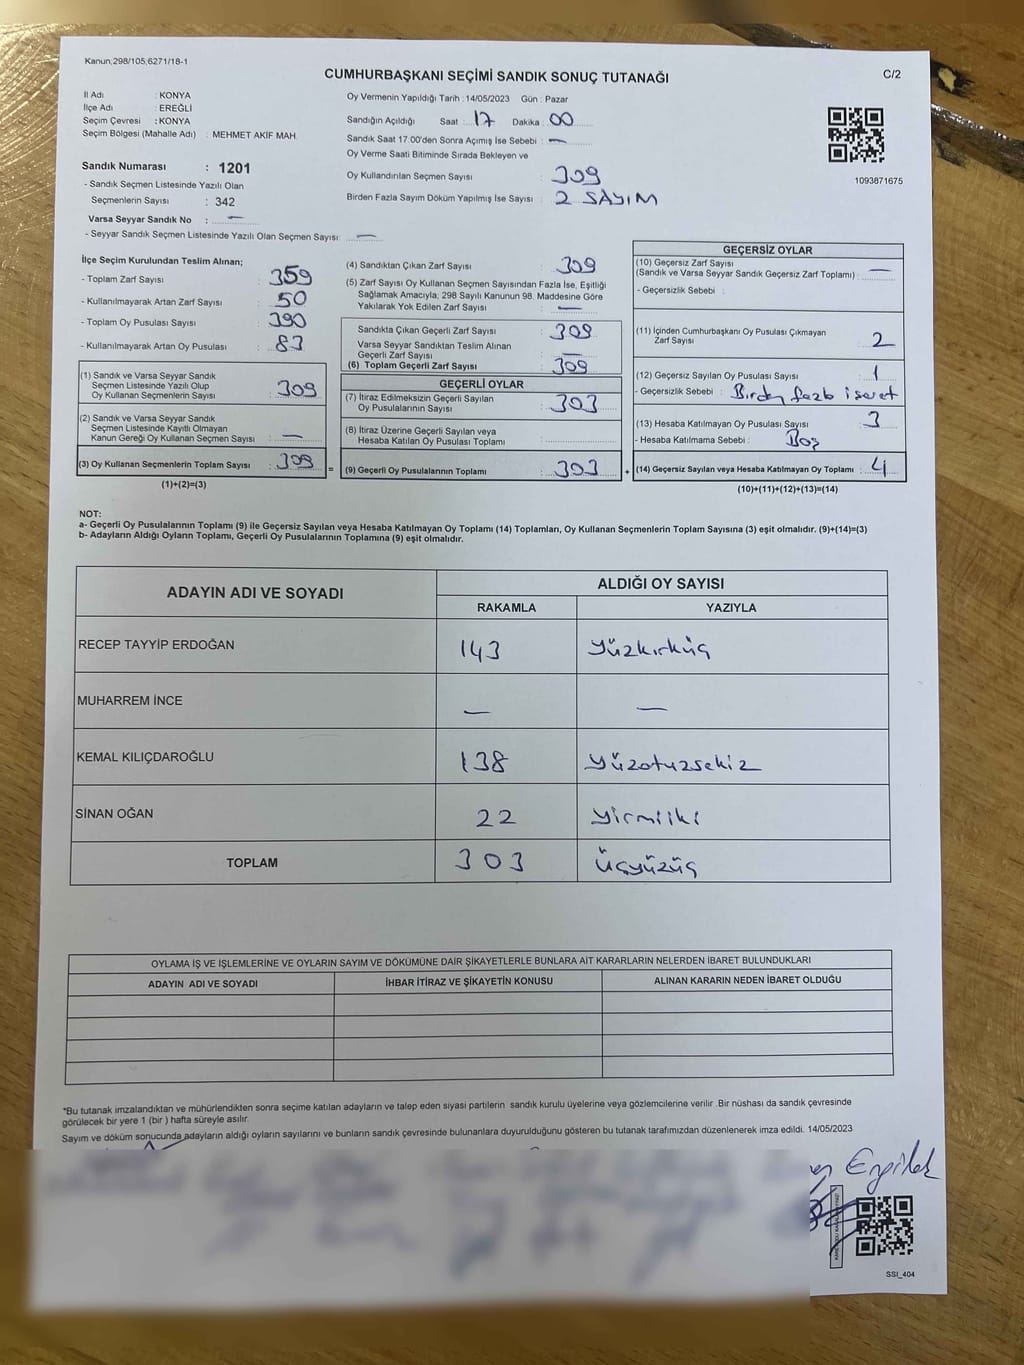 Kanun;298/105;6271/18-1
CUMHURBAŞKANI SEÇİMİ SANDIK SONUÇ TUTANAĞI
C/2
İl Adı : KONYA
İlçe Adı : EREĞLİ
Seçim Çevresi : KONYA
Seçim Bölgesi (Mahalle Adı) : MEHMET AKİF MAH
Sandık Numarası : 1201
- Sandık Seçmen Listesinde Yazılı Olan
Seçmenlerin Sayısı : 342
Varsa Seyyar Sandık No : —
- Seyyar Sandık Seçmen Listesinde Yazılı Olan Seçmen Sayısı: —
Oy Vermenin Yapıldığı Tarih :14/05/2023 Gün : Pazar
Sandığın Açıldığı Saat : 17 Dakika : 00
Sandık Saat 17.00'den Sonra Açımış İse Sebebi : —
Oy Verme Saati Bitiminde Sırada Bekleyen ve
Oy Kullandırılan Seçmen Sayısı : 309
Birden Fazla Sayım Döküm Yapılmış İse Sayısı : 2 SAYIM
1093871675
İlçe Seçim Kurulundan Teslim Alınan;
- Toplam Zarf Sayısı : 359
- Kullanılmayarak Artan Zarf Sayısı : 50
- Toplam Oy Pusulası Sayısı : 390
- Kullanılmayarak Artan Oy Pusulası : 83
(1) Sandık ve Varsa Seyyar Sandık
Seçmen Listesinde Yazılı Olup
Oy Kullanan Seçmenlerin Sayısı : 309
(2) Sandık ve Varsa Seyyar Sandık
Seçmen Listesinde Kayıtlı Olmayan
Kanun Gereği Oy Kullanan Seçmen Sayısı : —
(3) Oy Kullanan Seçmenlerin Toplam Sayısı : 309
(1)+(2)=(3)
(4) Sandıktan Çıkan Zarf Sayısı : 309
(5) Zarf Sayısı Oy Kullanan Seçmen Sayısından Fazla İse, Eşitliği
Sağlamak Amacıyla, 298 Sayılı Kanunun 98. Maddesine Göre
Yakılarak Yok Edilen Zarf Sayısı : —
Sandıkta Çıkan Geçerli Zarf Sayısı : 309
Varsa Seyyar Sandıktan Teslim Alınan
Geçerli Zarf Sayısı : —
(6) Toplam Geçerli Zarf Sayısı : 309
GEÇERLİ OYLAR
(7) İtiraz Edilmeksizin Geçerli Sayılan
Oy Pusulalarının Sayısı : 303
(8) İtiraz Üzerine Geçerli Sayılan veya
Hesaba Katılan Oy Pusulası Toplamı :
(9) Geçerli Oy Pusulalarının Toplamı : 303
GEÇERSİZ OYLAR
(10) Geçersiz Zarf Sayısı
(Sandık ve Varsa Seyyar Sandık Geçersiz Zarf Toplamı) : —
- Geçersizlik Sebebi :
(11) İçinden Cumhurbaşkanı Oy Pusulası Çıkmayan
Zarf Sayısı : 2
(12) Geçersiz Sayılan Oy Pusulası Sayısı : 1
- Geçersizlik Sebebi : Birden fazla işaret
(13) Hesaba Katılmayan Oy Pusulası Sayısı : 3
- Hesaba Katılmama Sebebi : Boş
(14) Geçersiz Sayılan veya Hesaba Katılmayan Oy Toplamı : 4
(10)+(11)+(12)+(13)=(14)
NOT:
a- Geçerli Oy Pusulalarının Toplamı (9) ile Geçersiz Sayılan veya Hesaba Katılmayan Oy Toplamı (14) Toplamları, Oy Kullanan Seçmenlerin Toplam Sayısına (3) eşit olmalıdır. (9)+(14)=(3)
b- Adayların Aldığı Oyların Toplamı, Geçerli Oy Pusulalarının Toplamına (9) eşit olmalıdır.
ADAYIN ADI VE SOYADI ALDIĞI OY SAYISI
RAKAMLA YAZIYLA
RECEP TAYYİP ERDOĞAN 143 Yüzkırküç
MUHARREM İNCE — —
KEMAL KILIÇDAROĞLU 138 Yüzotuzsekiz
SİNAN OĞAN 22 Yirmiiki
TOPLAM 303 Üçyüzüç
OYLAMA İŞ VE İŞLEMLERİNE VE OYLARIN SAYIM VE DÖKÜMÜNE DAİR ŞİKAYETLERLE BUNLARA AİT KARARLARIN NELERDEN İBARET BULUNDUKLARI
ADAYIN ADI VE SOYADI İHBAR İTİRAZ VE ŞİKAYETİN KONUSU ALINAN KARARIN NEDEN İBARET OLDUĞU
*Bu tutanak imzalandıktan ve mühürlendikten sonra seçime katılan adayların ve talep eden siyasi partilerin sandık kurulu üyelerine veya gözlemcilerine verilir .Bir nüshası da sandık çevresinde
görülecek bir yere 1 (bir ) hafta süreyle asılır.
Sayım ve döküm sonucunda adayların aldığı oyların sayılarını ve bunların sandık çevresinde bulunanlara duyurulduğunu gösteren bu tutanak tarafımızdan düzenlenerek imza edildi. 14/05/2023
SSI_404